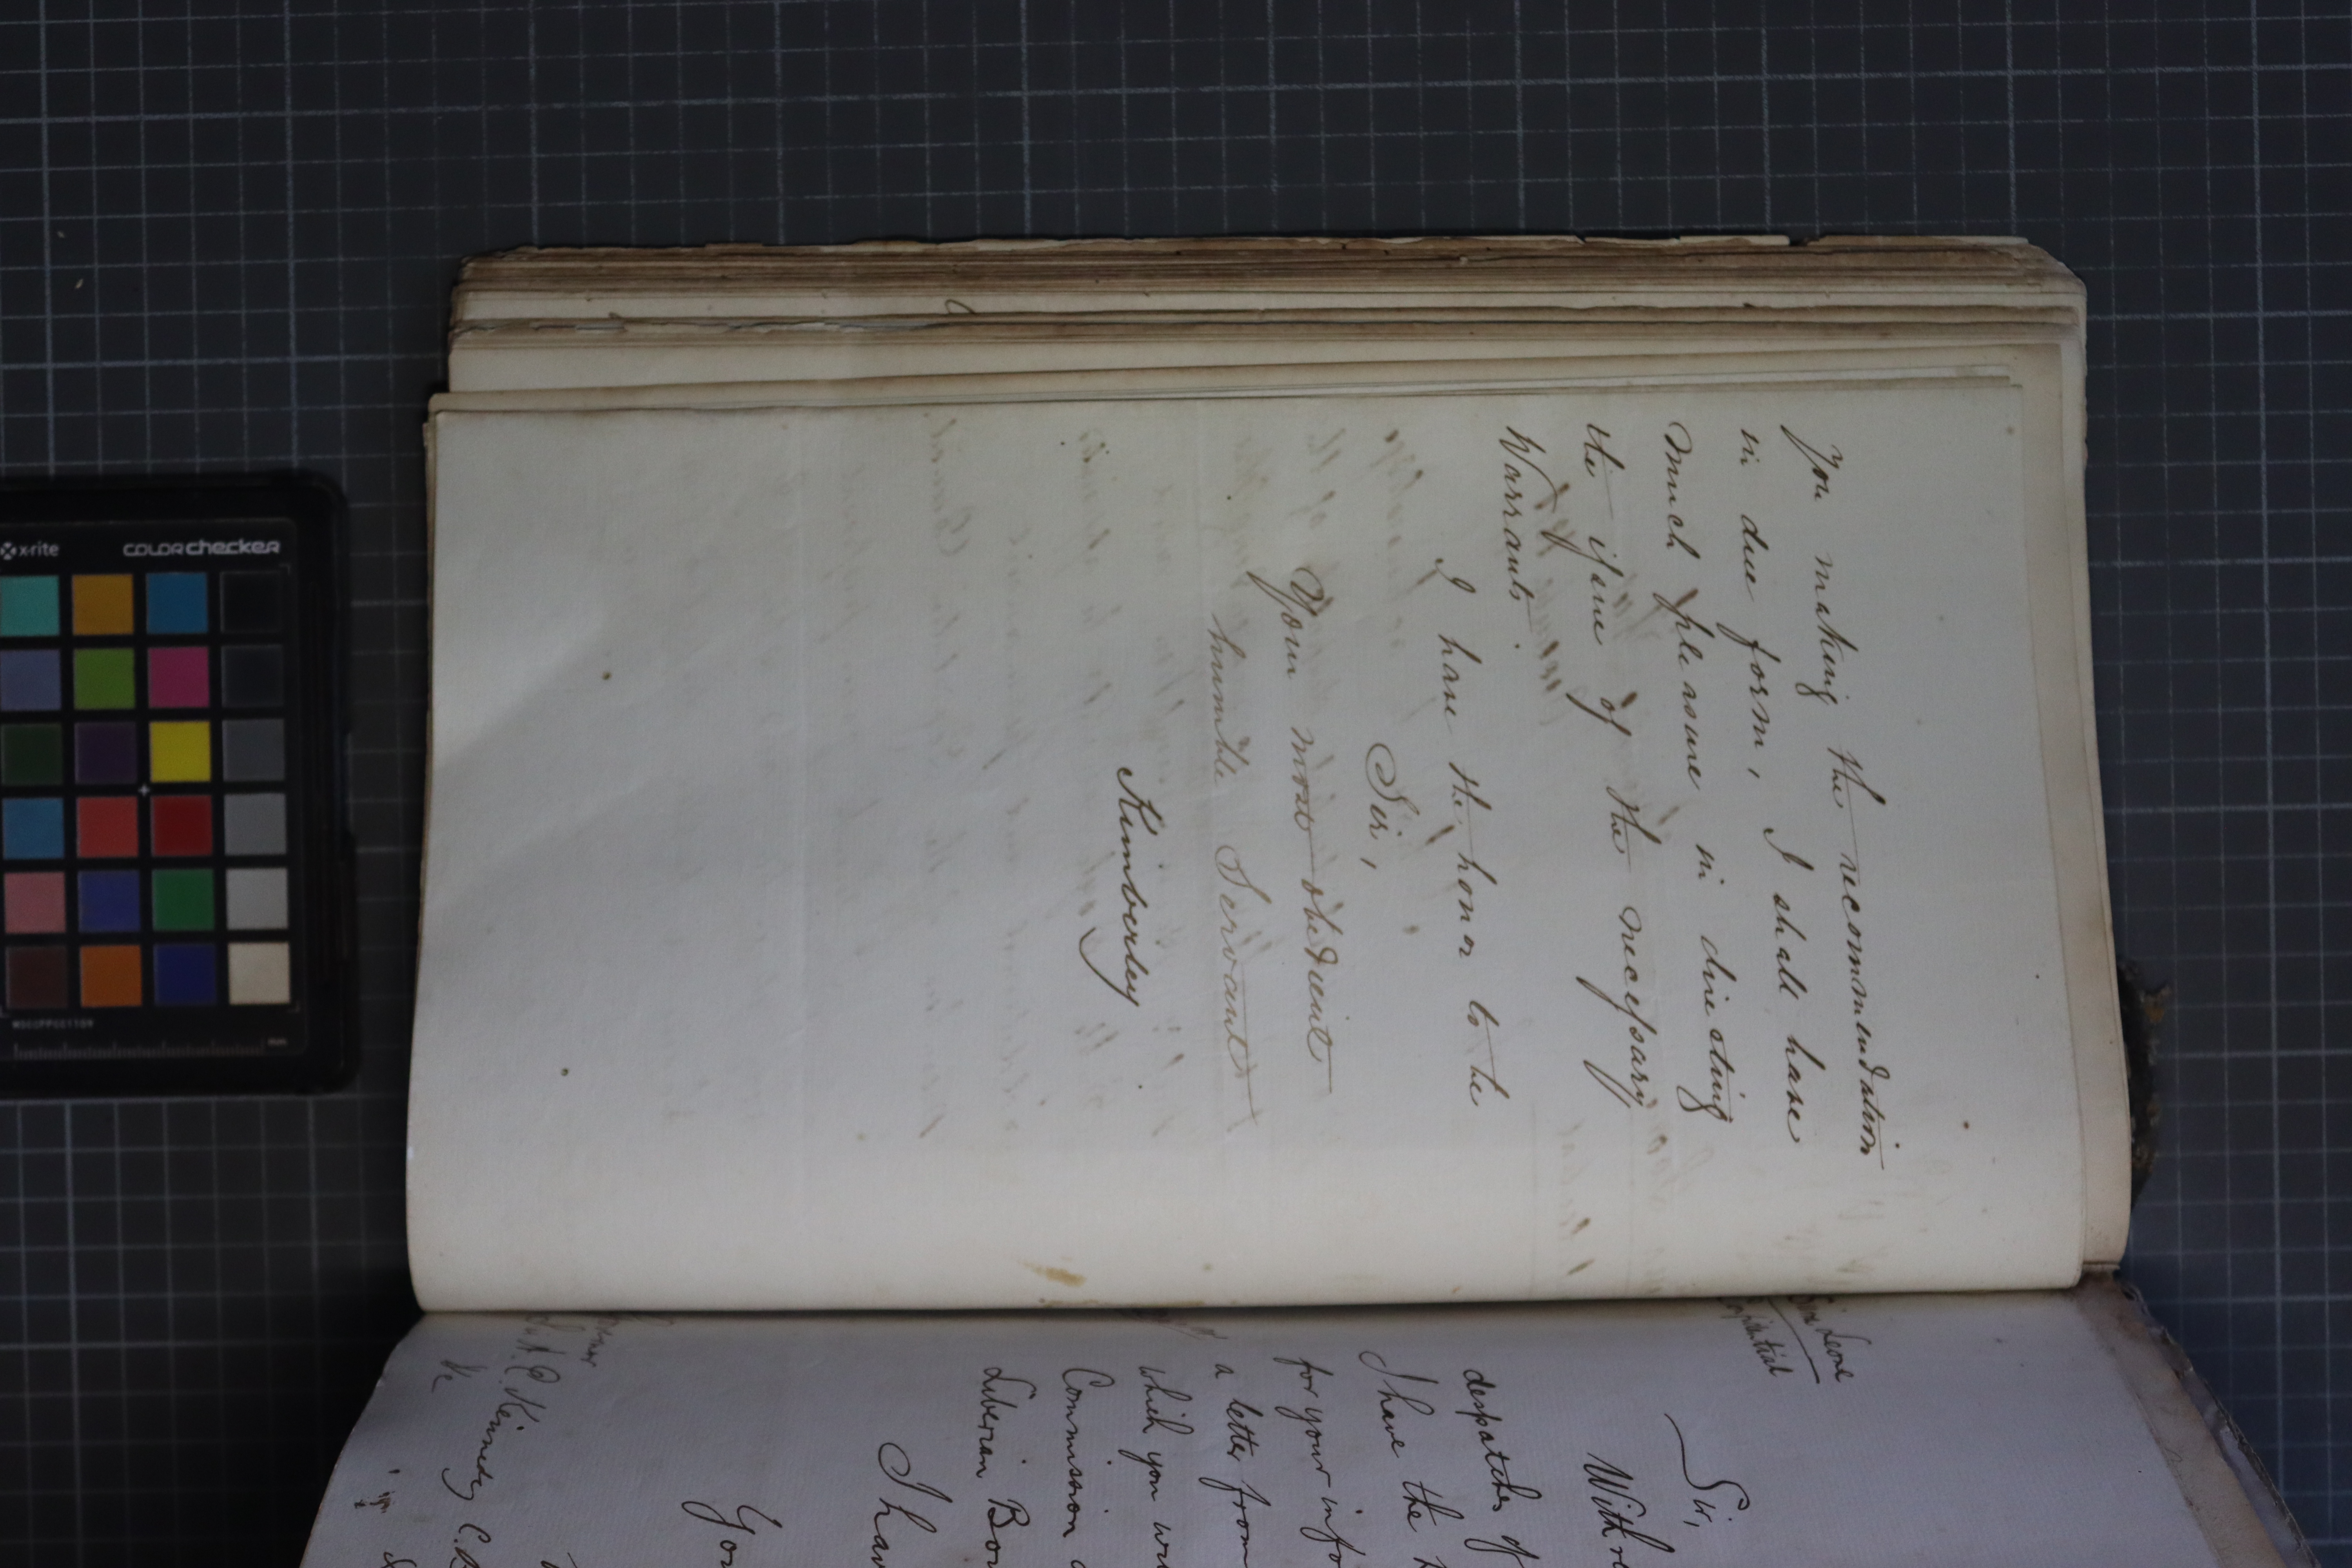 you making the recommendation
in due form, I shall have
much pleasure in directing
the issue of the necessary
Warrants.
I have the honor to be
Sir,
Your most obedient
humble Servant
Kimberley
Leone
Sir,
With
despatches of
I have the
for your
a letter from
which you
Commission
Liberian
I
Kennedy C.
x-rite
COLORchecker